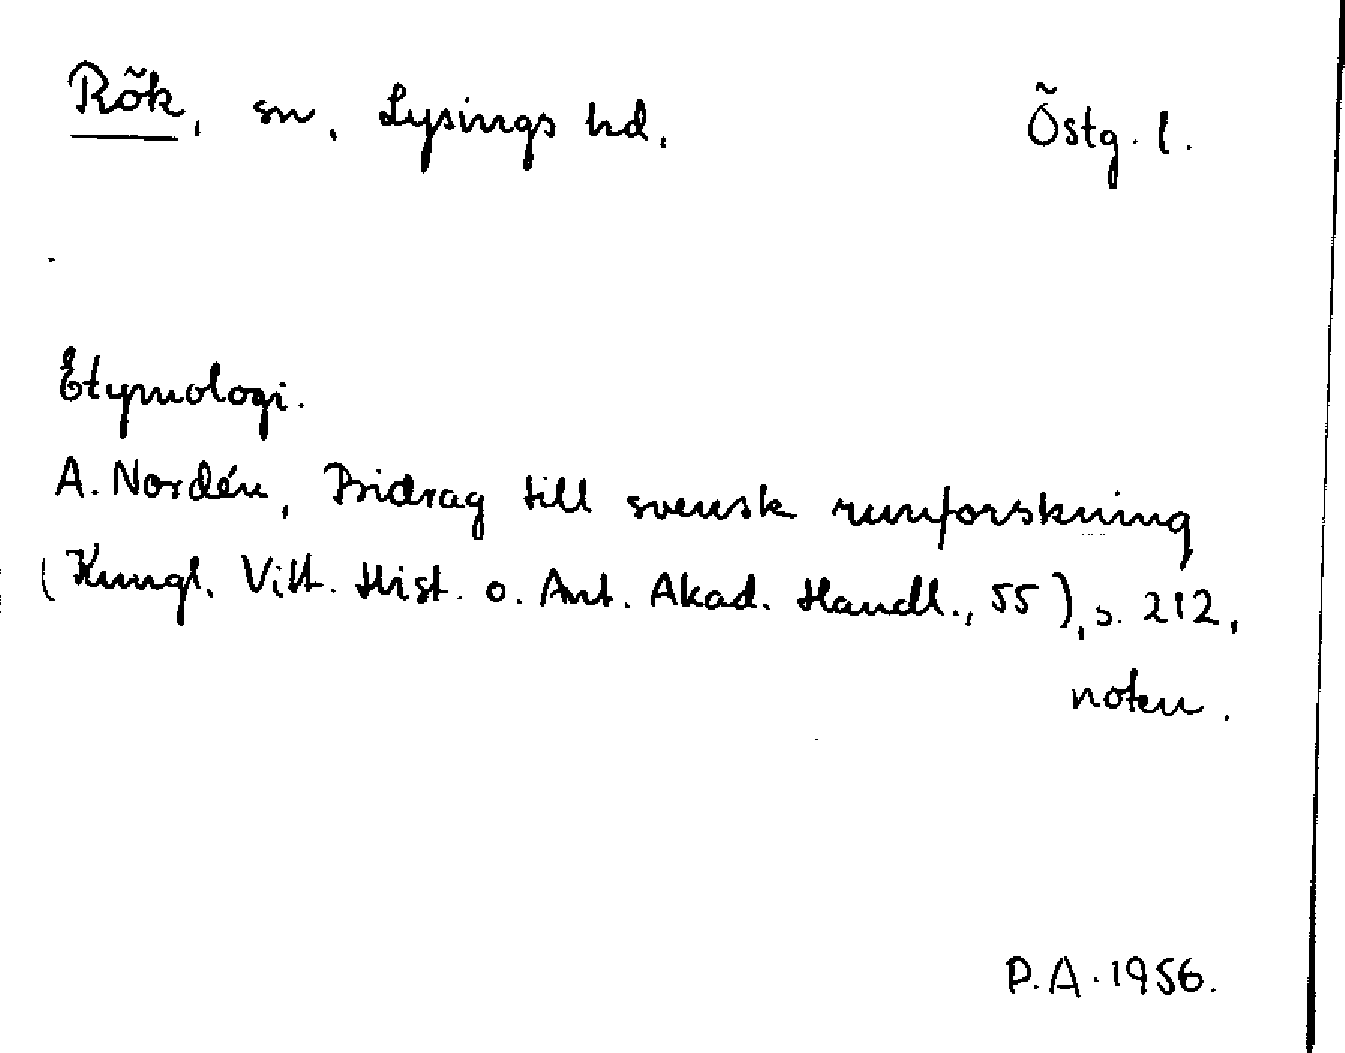 Rök, sn, Lysings hd, Östg. l.
Etymologi.
A. Nordén, Bidrag till svensk runforskning
(Kungl. Vitt. Hist. o. Ant. Akad. Handl., 55), s. 212,
noten.
P.A. 1956.